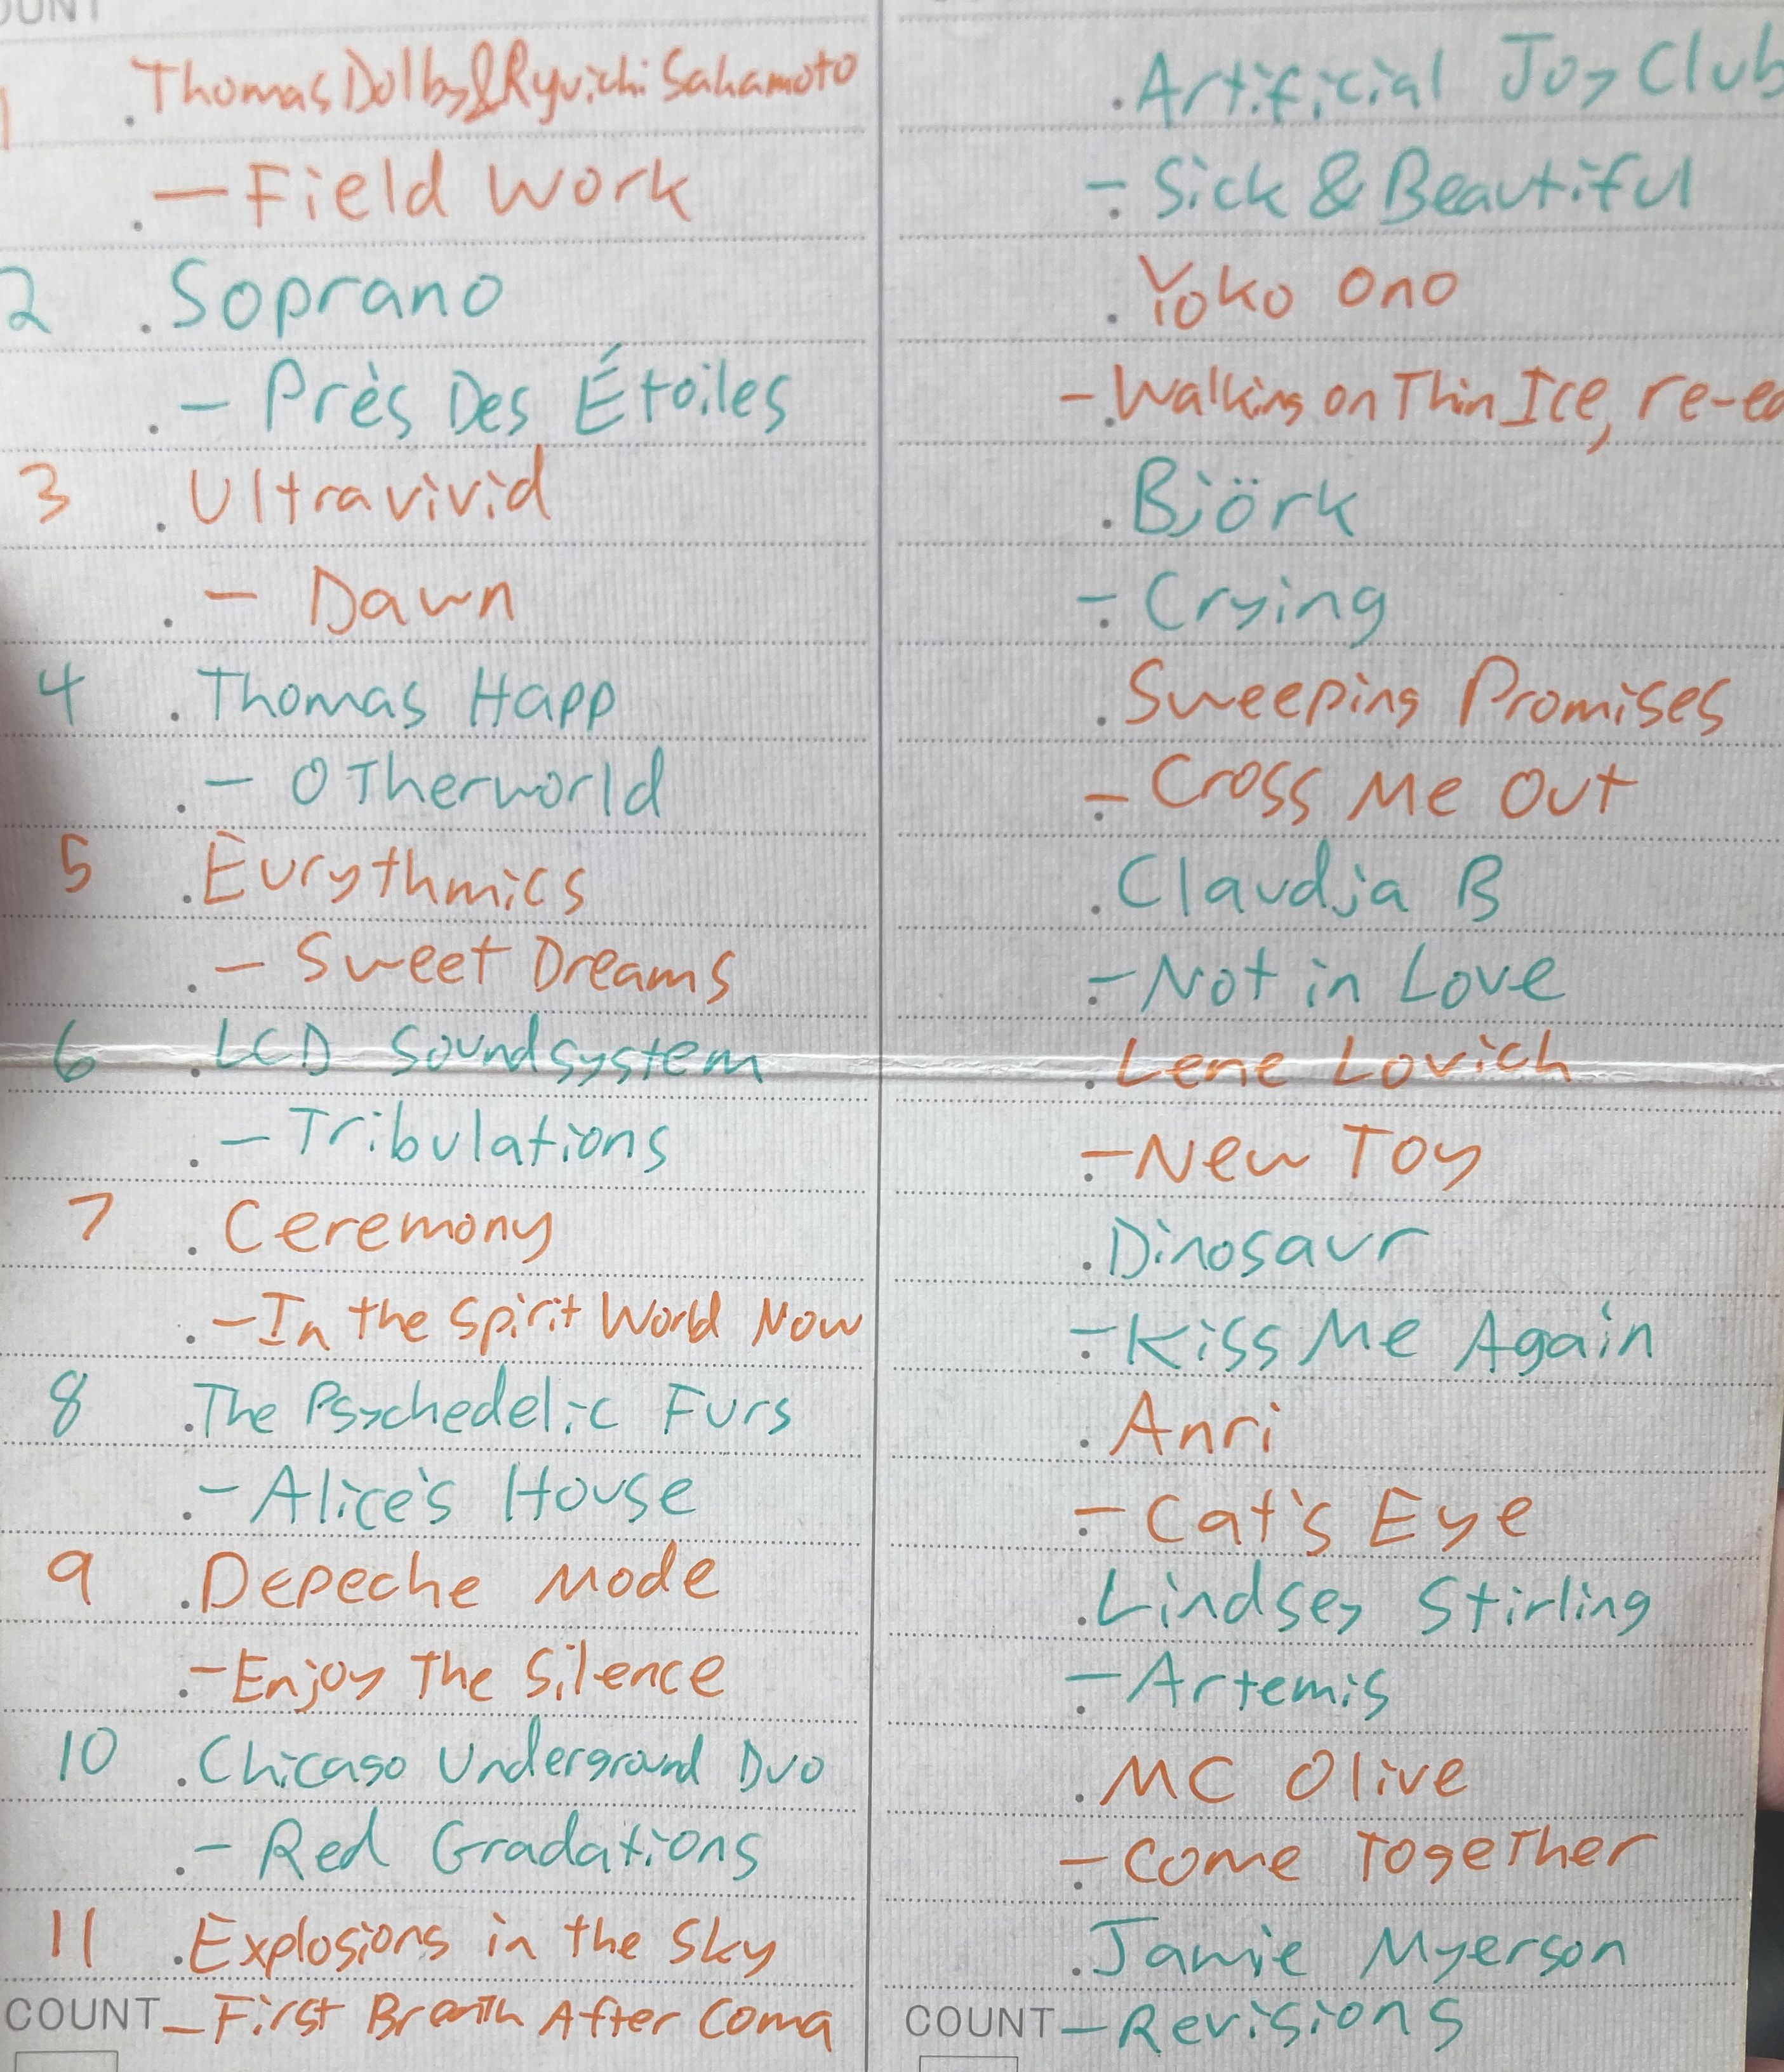 1 Thomas Dolby & Ryuichi Sakamoto
– Field Work
2 Soprano
– Près Des Étoiles
3 Ultravivid
– Dawn
4 Thomas Happ
– Otherworld
5 Eurythmics
– Sweet Dreams
6 LCD Soundsystem
– Tribulations
7 Ceremony
– In the Spirit World Now
8 The Psychedelic Furs
– Alice's House
9 Depeche Mode
– Enjoy The Silence
10 Chicago Underground Duo
– Red Gradations
11 Explosions in the Sky
COUNT – First Breath After Coma
Artificial Joy Club
– Sick & Beautiful
Yoko Ono
– Walking on Thin Ice,
Björk
– Crying
Sweeping Promises
– Cross Me Out
Claudja B
– Not in Love
Lene Lovich
– New Toy
Dinosaur
– Kiss Me Again
Anri
– Cat's Eye
Lindsey Stirling
– Artemis
MC Olive
– Come Together
Jamie Myerson
COUNT – Revisions